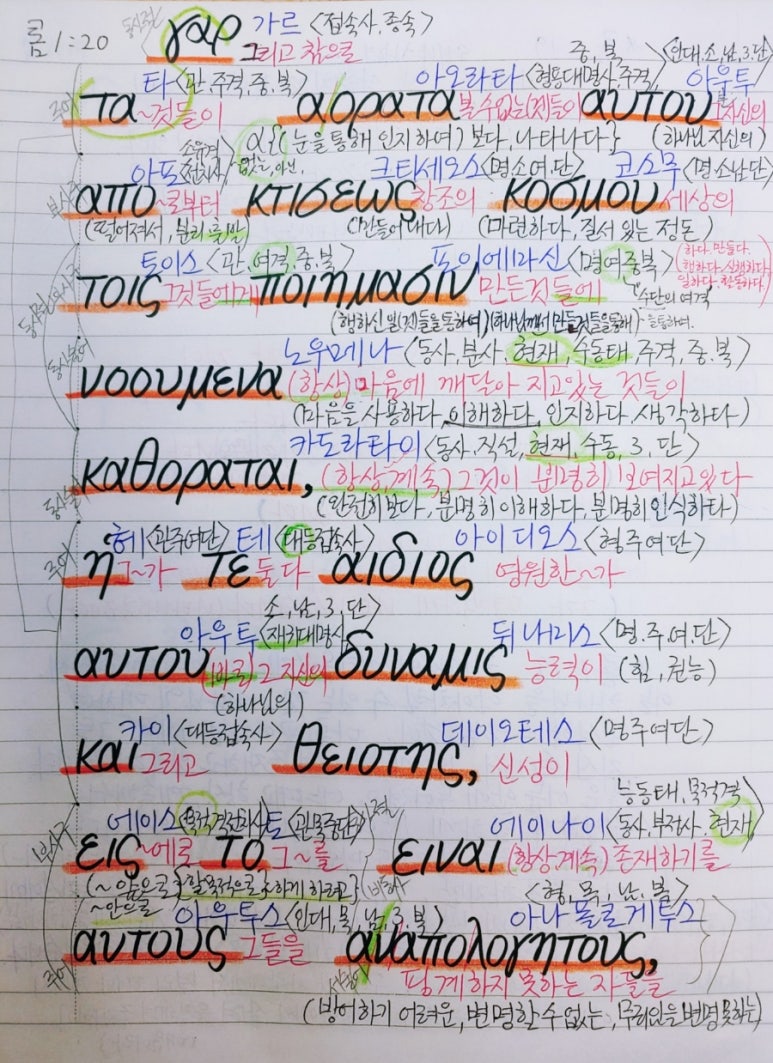 롬 1:20 γαρ 가르 <접속사, 종속>
그리고 참으로
중, 복 <인대, 소, 남, 3, 단>
타 <관, 주격, 중, 복> 아오라타 <형용대명사, 주격, 아우투
τα ~것들이 αορατα 볼수없는(것)들이 αυτου 그자신의
α{(눈을 통해 인지하여) 보다, 나타나다} (하나님 자신의)
소유격 ~없는, 아닌,
아포 <전치사> 크티세오스 <명소여, 단> 코스무 <명소남단>
απο ~로부터 κτισεως 창조의 κοσμου 세상의
(떨어져서, 분리, 출발) (만들어내다) (마련하다, 질서 있는 정돈)
토이스 <관, 여격, 중, 복> 포이에마신 <명여중복> (하다. 만들다. 행하다. 실행하다. 일하다. 활동하다)
τοις 그것들에게 ποιημασιν 만든것들에 "수단의 여격
(행하신 일(것)들을 통하여) (하나님께서 만들것들을통해) ~을통하여.
노우메나 <동사, 분사, 현재, 수동태, 주격, 중, 복>
νοουμενα (항상) 마음에 깨달아 지고있는 것들이
(마음을 사용하다, 이해하다, 인지하다, 생각하다)
카도라타이 <동사, 직설, 현재, 수동, 3, 단>
καθοραται, (항상, 계속) 그것이 분명히 보여지고있다
(완전히보다, 분명히 이해하다, 분명히 인식하다)
헤 <관주여단> 테 <대등접속사> 아이디오스 <형주여단>
ἡ 그~가 τε 둘 다 αιδιος 영원한~가
소, 남, 3, 단>
아우투 <재귀대명사, 뒤나미스 <명, 주, 여, 단>
αυτου (바로) 그 자신의 δυναμις 능력이 (힘, 권능)
(하나님의)
카이 <대등접속사> 데이오테스 <명주여단>
και 그리고 θειοτης, 신성이
능동태, 목적격>
에이스 <목적격전치사> 토 <관목중단> 에이나이 <동사, 부정사, 현재,
εις ~에로 το 그~를 ειναι (항상, 계속) 존재하기를
(~앞으로) {할목적으로} ~하게 하려고} <형, 목, 남, 복>
~안으로 아우투스 <인대, 목, 남, 3, 복> 아나폴로게투스
αυτους 그들을 αναπολογητους,
핑계하지 못하는 자들을
(방어하기 어려운, 변명할 수 없는, 무죄임을 변명 못하는)